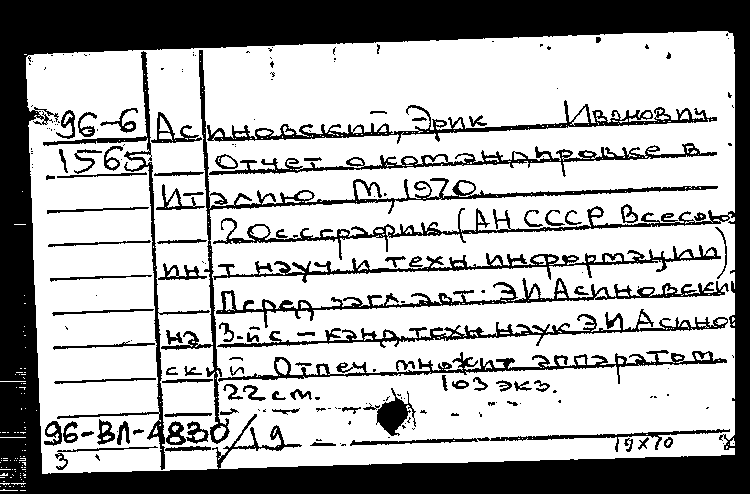 96-6 Асиновский, Эрик Иванович
1565 Отчет о командировке в
Италию. М., 1970.
20 с. с график (АН СССР Всесоюз
ин-т науч. и техн. информации)
Перед загл. авт.: Э.И Асиновский
на 3-й с. – канд. техн. наук Э.И. Асинов
ский. Отпеч. множит аппаратом
22 см. 103 экз.
96-ВЛ-4830/19
3 19x70